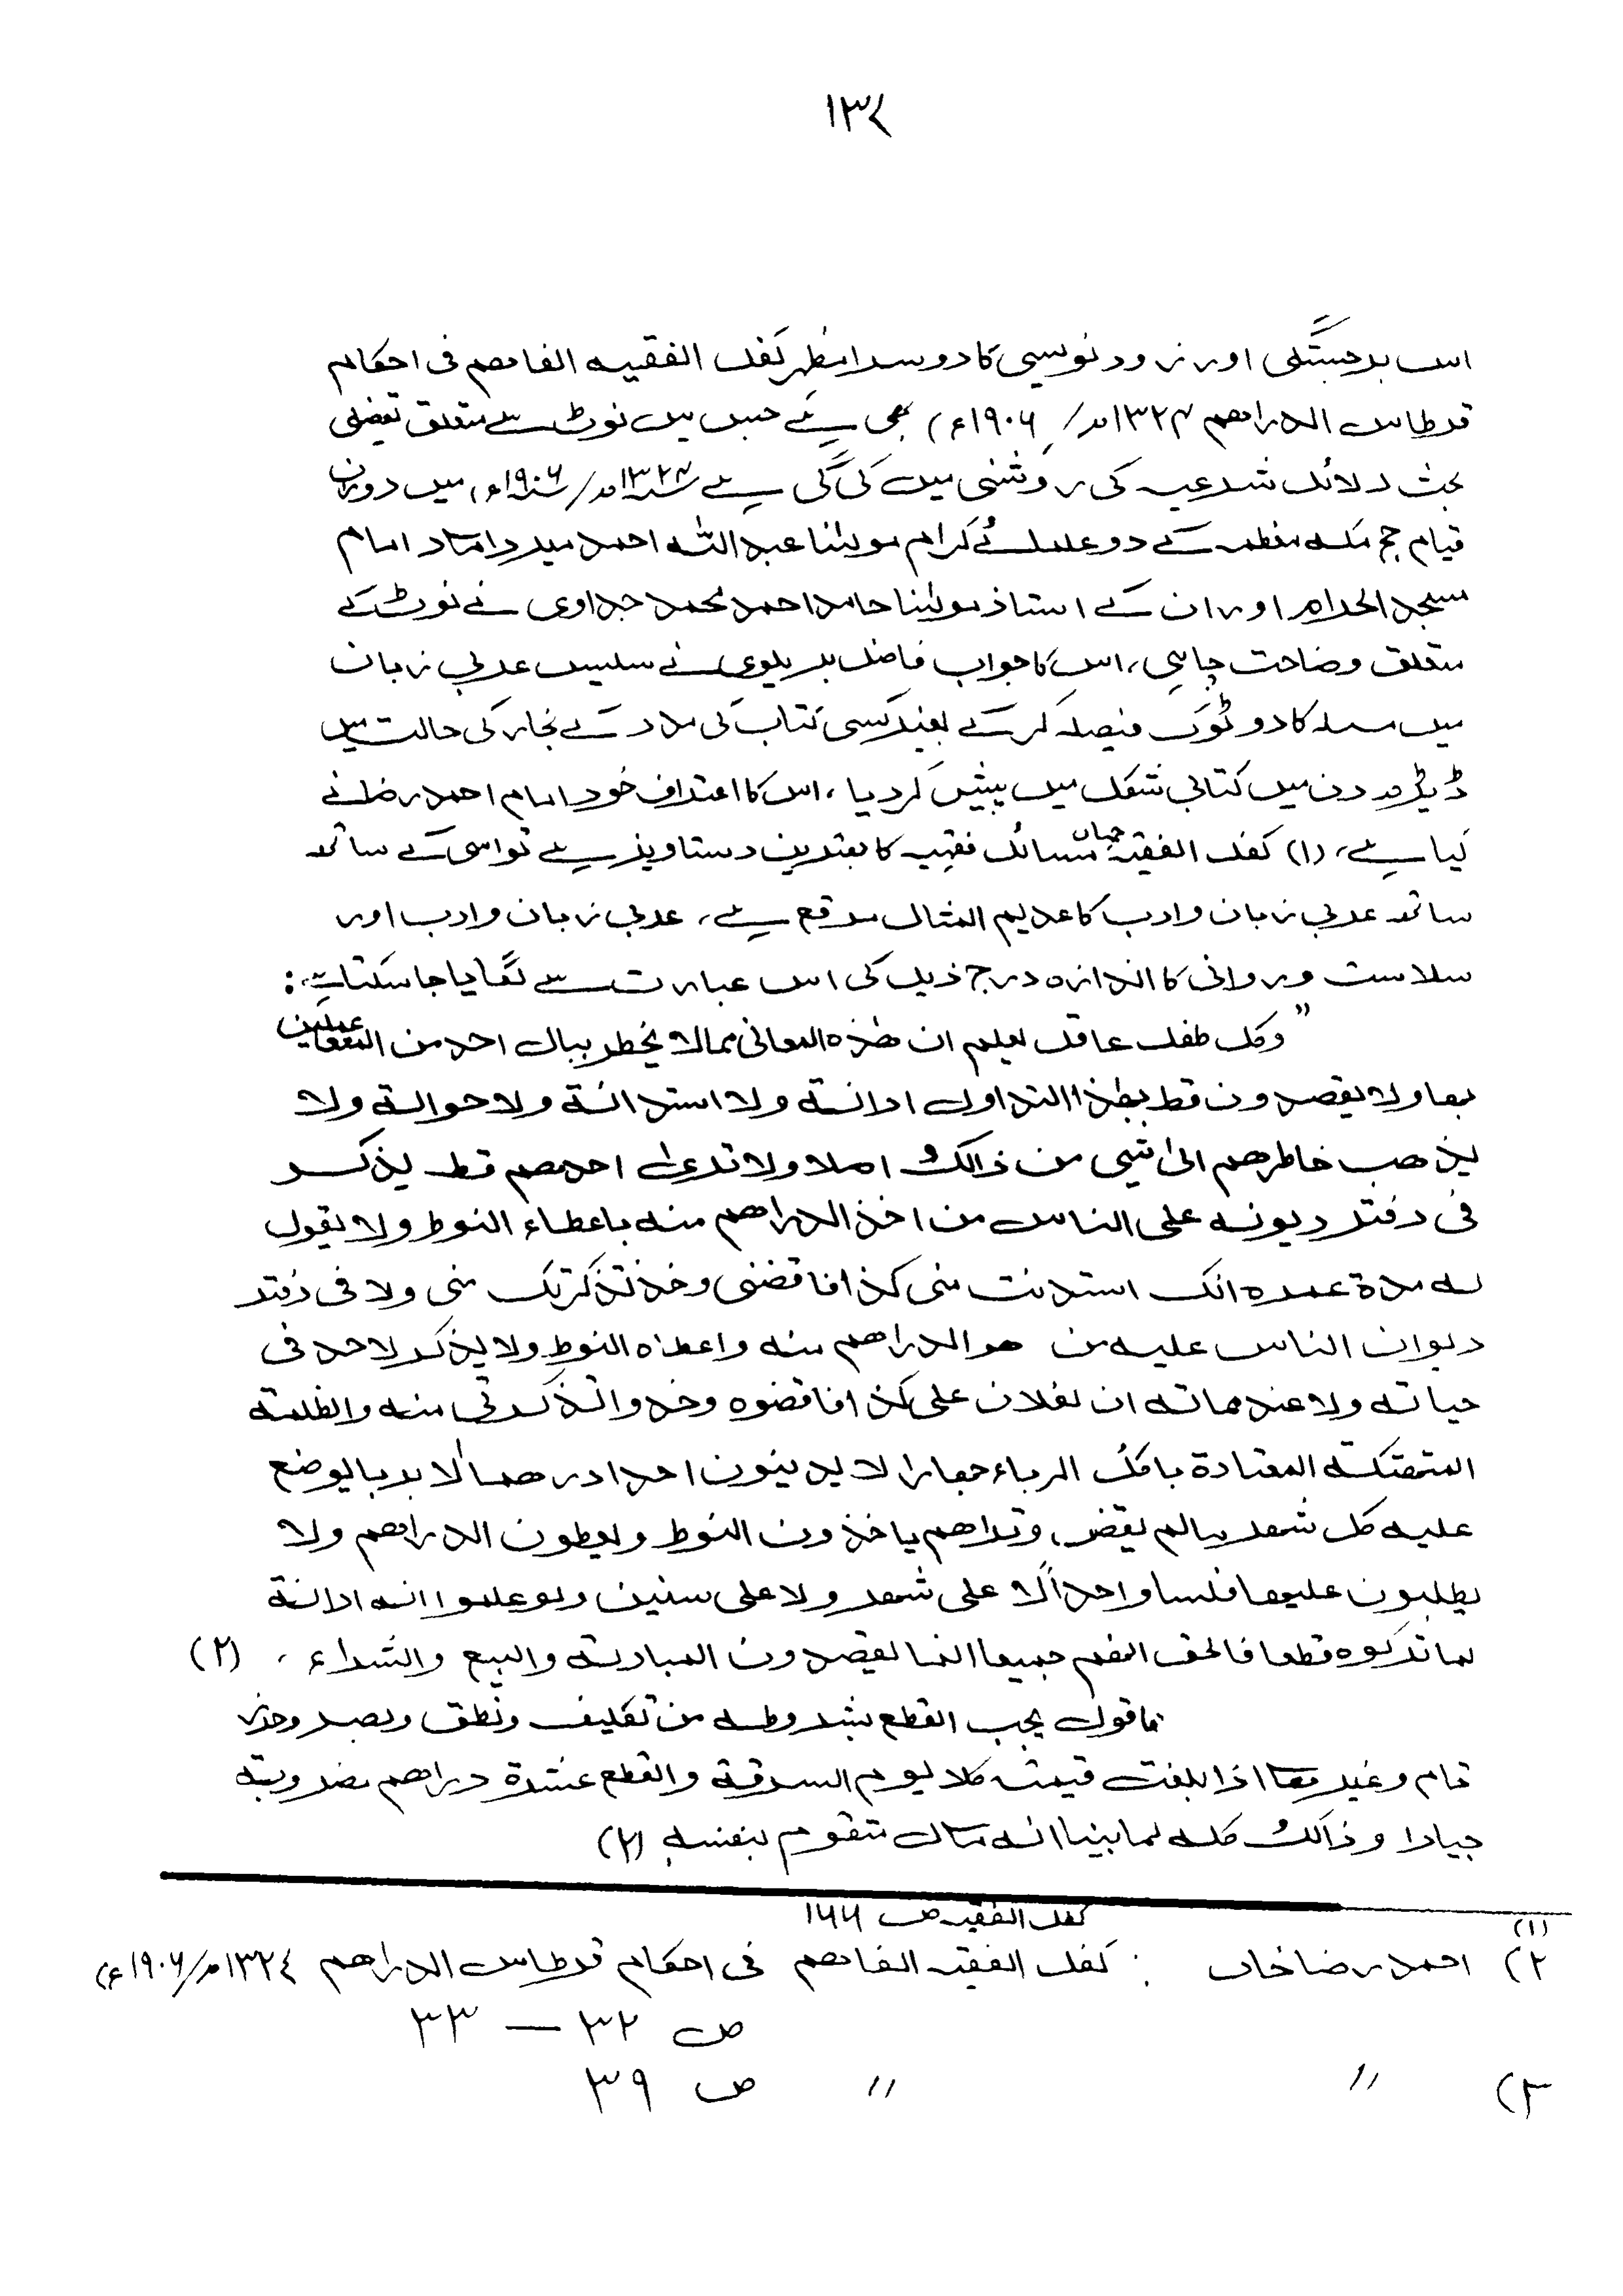 ۱۳۴
اس برجستگی اور زود نویسی کا دوسرا مظہر کفل الفقیہ الفاھم فی احکام
قرطاس الدراھم ۱۳۲۴ھ/ ۱۹۰۶ء) بھی ہے جس میں نوٹ سے متعلق تفصیلی
بحث دلائل شرعیہ کی روشنی میں کی گئی ہے ۱۳۲۴ھ/۱۹۰۶ء میں دوران
قیام حج مکہ معظمہ کے دو علمائے کرام مولٰنا عبداللہ احمد میرداد امام
مسجد الحرام اور ان کے استاذ مولٰنا حامد احمد محمد جداوی نے نوٹ کے
متعلق وضاحت چاہی، اس کا جواب فاضل بریلوی نے سلیس عربی زبان
میں مسلہ کا دو ٹوک فیصلہ کر کے بغیر کسی کتاب کی مدد کے بخار کی حالت میں
ڈیڑھ دن میں کتابی شکل میں پیش کر دیا، اس کا اعتراف خود امام احمد رضا نے
کیا ہے، (۱) کفل الفقیہ جہاں مسائل فقہیہ کا بہترین دستاویز ہے تو اسی کے ساتھ
ساتھ عربی زبان و ادب کا عدیم المثال مرقع ہے، عربی زبان و ادب اور
سلاست و روانی کا اندازہ درج ذیل کی اس عبارت سے لگایا جا سکتا ہے:
"وکل طفل عاقل یعلم ان ھٰذہ المعانی مما لا یخطر ببال احد من المتعاملین
بھا ولا یقصدون قط بھٰذا التداول ادانۃ ولا استدانۃ ولا حوالۃ ولا
یذھب خاطرھم الیٰ شیی من ذالک اصلا ولا تریٰ احدھم قط یذکر
فی دفتر دیونہ علی الناس من اخذ الدراھم منہ باعطاء النوط ولا یقول
لہ مدۃ عمرہ انک استدنت منی کذا فاقضنی وخذ تذکرتک منی ولا فی دفتر
دیوان الناس علیہ من ھو الدراھم منہ واعطاہ النوط ولا یذکر لاحد فی
حیاتہ ولا عند مماتہ ان لفلان علی کذا فاقضوہ وخذوا تذکرتی منہ والظلمۃ
المتھتکۃ المعتادۃ باکل الرباء جھارا لا یدینون احدا درھما الا بربا یوضع
علیہ کل شھر مالم یقض، وتراھم یاخذون النوط ویعطون الدراھم ولا
یطلبون علیھا فلسا واحداً لا علی شھر ولا علی سنین ولو علموا انہ ادانۃ
لما ترکوہ قطعا فالحق انھم جمیعا انما یقصدون المبادلۃ والبیع والشراء، (۲)
فاقول یجب القطع بشروطہ من تکلیف ونطق وبصر وحرز
تام وغیرھا اذا بلغت قیمتہ کلا یوم السرقۃ والقطع عشرۃ دراھم مضروبۃ
جیادا وذالک کلہ لما بینا انہ مال متقوم بنفسہ (۲)
(۱) کفل الفقیہ ص ۱۶۶
۲) احمد رضا خاں : کفل الفقیہ الفاھم فی احکام قرطاس الدراھم ۱۳۲۴ھ/۱۹۰۶ء)
ص ۳۲ — ۳۳
۳) // // ص ۳۹